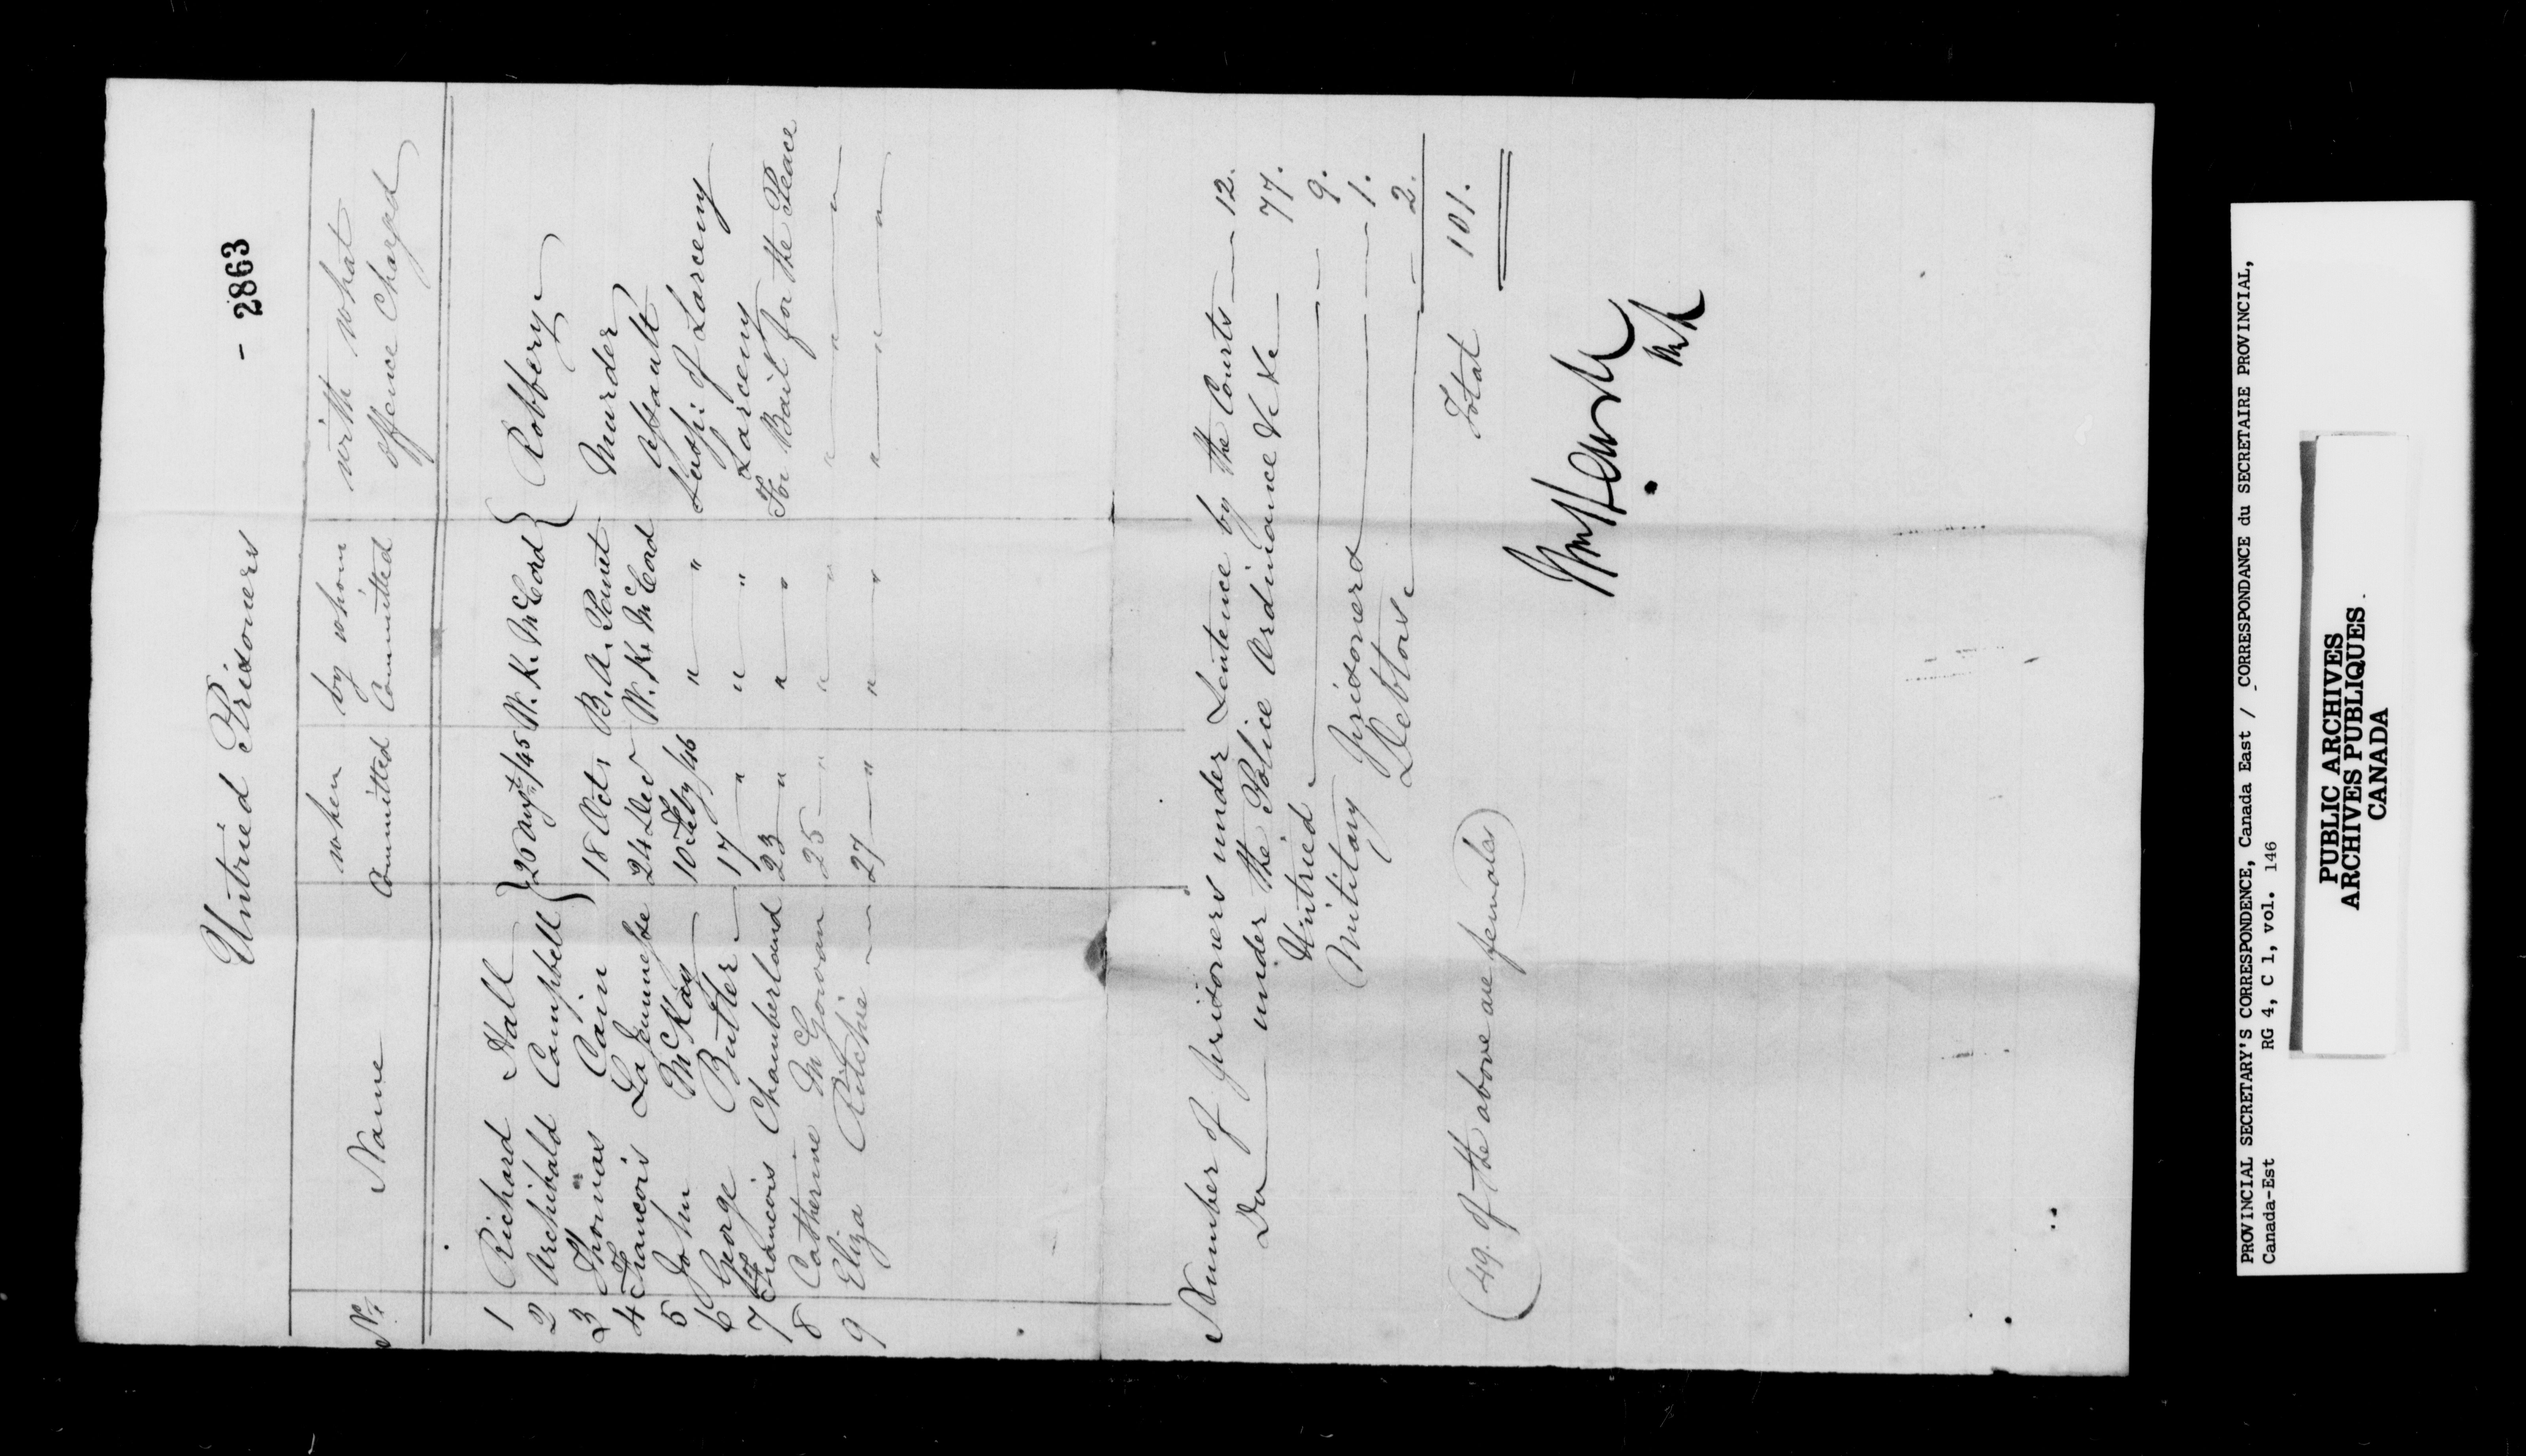 - 2863
Untried Prisoners
No. Name when Committed by whom Committed with what offence Charged
1 Richard Hall } 26 Augt/45 W. K. McCord { Robbery
2 Archibald Campbell
3 Thomas Cain 18 Oct. B. A. Panet Murder
4 Francois LaJeunesse 24 Decr W. K. McCord Assault
5 John McKay 10 Feby/46 " " Suspi: of Larceny
6 George Butler 17 " " " Larceny
7 Francois Chamberland 23 " " " For Bail for the Peace
8 Catherine McGowan 25 " " " " " "
9 Eliza Ritchie 27 " " " " " "
Number of prisoners under Sentence by the Courts 12.
Do under the Police Ordinance &c &c 77.
Untried 9.
Military prisoners 1.
Debtors 2.
Total 101.
(49. of the above are females)
PROVINCIAL SECRETARY'S CORRESPONDENCE, Canada East / CORRESPONDANCE du SECRETAIRE PROVINCIAL,
Canada-Est RG 4, C 1, vol. 146
PUBLIC ARCHIVES
ARCHIVES PUBLIQUES
CANADA